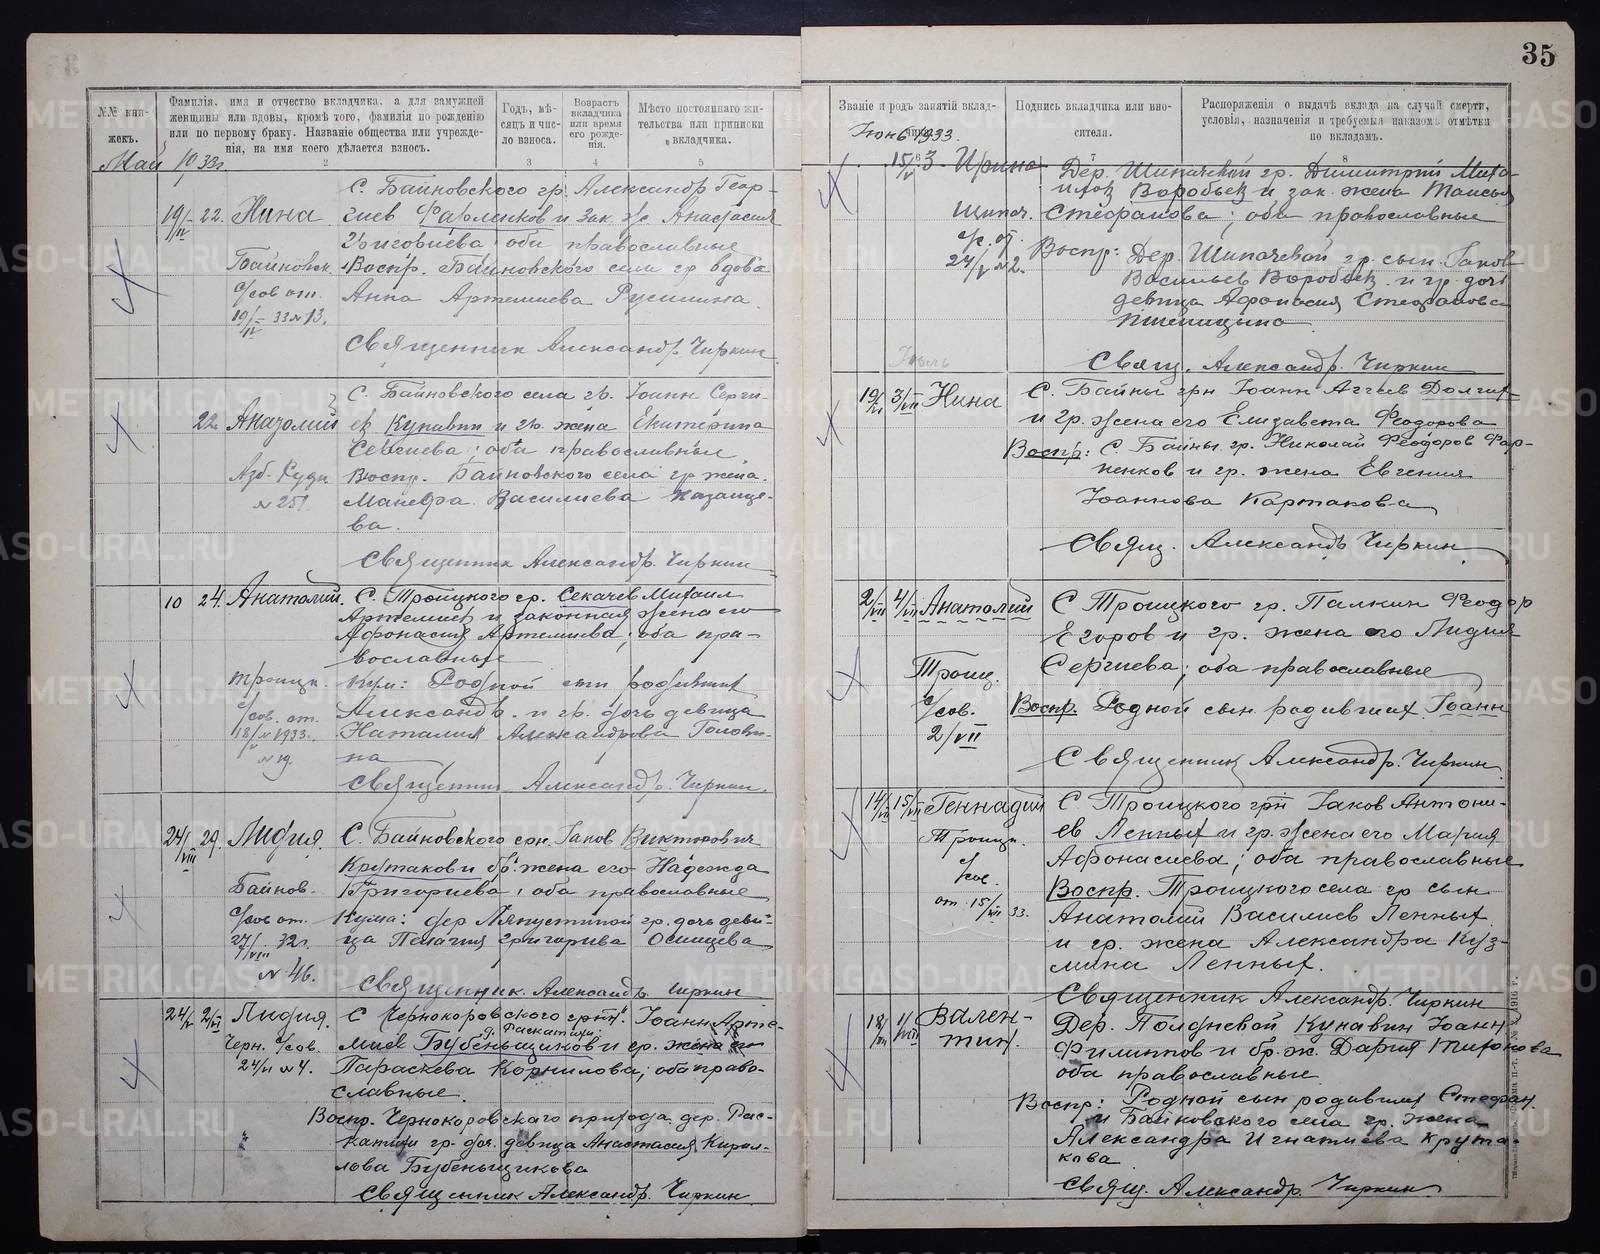 №№ кни-
жекъ.
Фамилія, имя и отчество вкладчика, а для замужней
женщины или вдовы, кромѣ того, фамилія по рожденію
или по первому браку. Названіе общества или учрежде-
нія, на имя коего дѣлается взносъ.
Годъ, мѣ-
сяцъ и чис-
ло взноса.
Возрастъ
вкладчика
или время
его рожде-
нія.
Мѣсто постояннаго жи-
тельства или приписки
вкладчика.
2
3
4
5
Май 1933г.
С. Байновского гр. Александр Геор-
19/IV 22. Нина гиев Фарленков и зак. ж. Анастасия
оба православные
Байновск. Воспр. Байновского села гр вдова
с/сов от. Анна Артемиева
19/IV 33 №13.
Священник Александр Чиркин
С. Байновского села гр. Иоанн Серги-
22. Анатолий ев Кунавин и гр. жена Екатерина
Сергиева; оба православныи.
№ 251.
Воспр. Байновского села гр жена.
Василиева Казанце-
ва.
Священник Александр Чиркин
10 24. Анатолий. С. Троицкого гр. Секачев Михаил
Артемиев и законная жена его
Афонасия Артемиева; оба пра-
вославные
Троицк.
с/сов. от.
18/V 1933.
№ 19.
Александр. и гр. дочь девица
Наталия Александрова Головк-
на
Священник Александр. Чиркин.
24/VIII 29. Лидия. С. Байновского грн. Иаков Викторович
Крутаков и бр. жена его Надежда
Григориева, оба православные
Байнов.
с/сов от. Кума: дер Ляпустиной гр. дочь деви-
27/VIII 32г. ца Пелагия Григорива Осинцева
№ 46.
Священник. Александр. Чиркин
24/V 2/VI Лидия. С Чернокоровского грн. Иоанн Арте-
д. Раскатихи
Черн. с/сов. миев Бубеньщиков и гр. жена его
№4. Параскева Корнилова; оба право-
славные.
Воспр. Чернокоровского прихода дер. Рас-
катихи гр. доч. девица Анастасия Кирил-
лова Бубеньщикова
Священник Александр. Чиркин
35
Званіе и родъ занятій вклад-
чика.
Подпись вкладчика или вно-
сителя.
Распоряженія о выдачѣ вклада на случай смерти,
условія, назначенія и требуемыя наказомъ отмѣтки
по вкладамъ.
6
7
8
Июнь 1933.
15/V 3 Ирина Дер. Шипачевой гр. Димитрий Миха-
илов Воробьев и зак. жена Таисья
Шипач. Стефанова; оба православные
с/с. от.
24/V №2.
Воспр: Дер. Шипачевой гр. сын Иаков
Васильев Воробьев и гр. дочь
девица Афонасия Стефановa
Пшеницына
Свящ. Александр. Чиркин
Июль
19/VI 3/VII Нина С. Байны грн Иоанн Аггеев Долгих
и гр. жена его Елизавета Феодорова
Воспр: С. Байны. гр. Николай Феодоров Фар-
ненков и гр. жена Евгения
Иоаннова Картакова
Свящ. Александр Чиркин
2/VII 4/VII Анатолий С Троицкого гр. Палкин Феодор
Егоров и гр. жена его Лидия
Сергиева; оба православные
Троиц.
с/сов.
2/VII
Воспр. Родной сын родивших Иоанн
Священник Александр. Чиркин
14/VII 15/VII Геннадий С. Троицкого грн Иаков Антони-
ев Ленных и гр. жена его Мария
Афонасиева; оба православные
Троицк.
с/сов.
от 15/VII 33.
Воспр. Троицкого села гр сын
Анатолий Василиев Ленных
и гр. жена Александра Куз-
мина Ленных.
Священник Александр. Чиркин
Вален-
тин.
Дер. Полдневой Кунавин Иоанн
Филиппов и бр. ж. Дария Титокова
оба православные
Воспр: Родной сын родивших Стефан.
и Байновского села гр. жена
Александра Игнатиева Крута-
кова
Свящ. Александр. Чиркин
METRIKI.GASO-URAL.RU